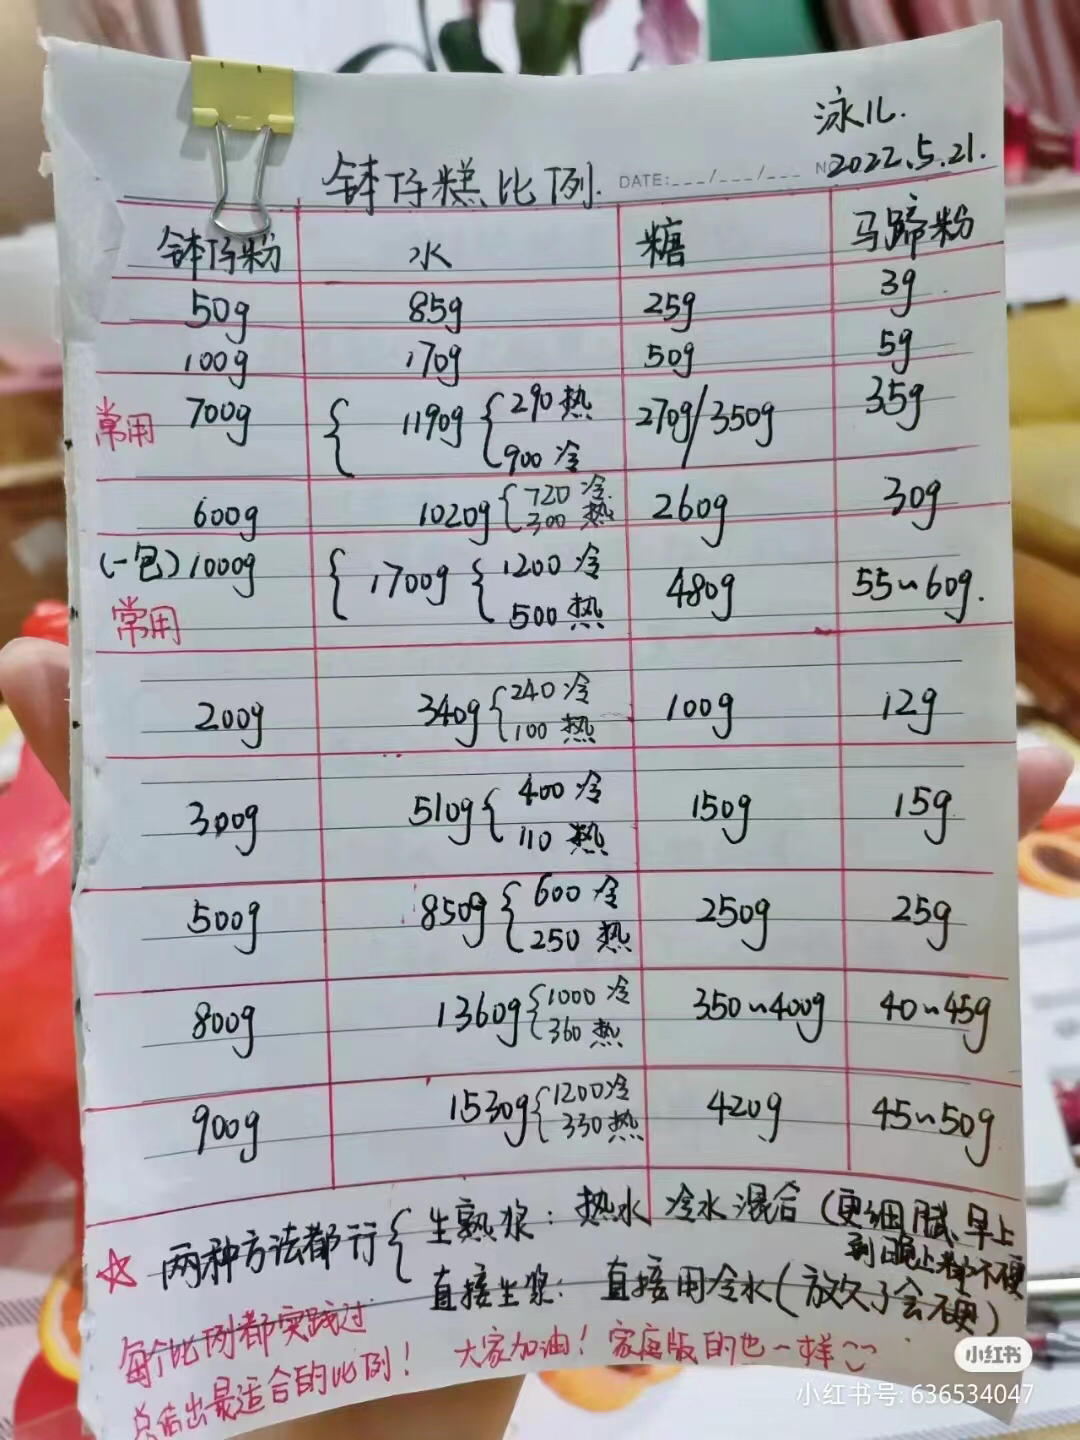 泳儿.
2022.5.21.
钵仔糕比例.
DATE:___/___/___ No
钵仔粉 水 糖 马蹄粉
50g 85g 25g 3g
100g 170g 50g 5g
常用 700g { 1190g { 290 热 900 冷 270g/350g 35g
600g 1020g { 720 冷 300 热 260g 30g
(一包) 1000g { 1700g { 1200 冷 500 热 480g 55~60g.
常用
200g 340g { 240 冷 100 热 100g 12g
300g 510g { 400 冷 110 热 150g 15g
500g 850g { 600 冷 250 热 250g 25g
800g 1360g { 1000 冷 360 热 350~400g 40~45g
900g 1530g { 1200冷 330热 420g 45~50g
☆ 两种方法都行 { 生熟浆: 热水 冷水混合 (更细腻、早上
到晚上都不硬
直接生浆: 直接用冷水(放久了会硬)
每个比例都实践过
总结出最适合的比例! 大家加油! 家庭版的也一样~
小红书
小红书号: 636534047